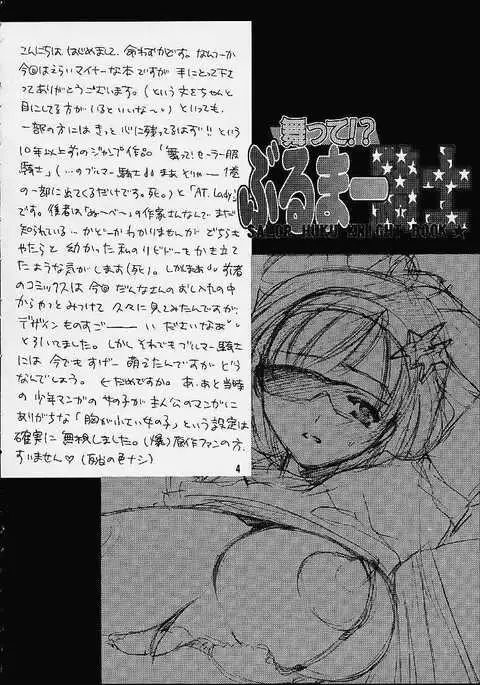 こんにちは はじめまして、命わずかです。なんつーか
今回はえらいマイナーな本ですが 手にとって下さ
ってありがとうございます。(という文をちゃんと
目にしてる方がいるといいな〜。) といっても、
一部の方にはきっと心に残ってるはず!! という
10年以上前のジャンプ作品「舞って!セーラー服
騎士」(…のブルマー騎士 まあ とりゃー 1巻
の一部に出てくるだけです。死。)と「AT. Lady」
です。作者は「ぬ〜べ〜」の作家さんなんで まだ
知られている…かどーかわかりませんが どちらも
やたらと 幼かった私のリビドーをかき立て
たような気がします(死)。しかしまあ 前者
のコミックスは 今回 だんなさんのおし入れの中
からやっとみつけて 久々に見てみたんですが、
デザインものすごーーー い ださいなあ
とろいてました。しかし それでもブルマー騎士
には 今でもすげー 萌えたんですが どう
なんでしょう。 ←だめですか。 あ、あと当時
の少年マンガの女の子が主人公のマンガに
ありがちな「胸が小さい女の子」という設定は
確実に 無視しました。(爆)原作ファンの方、
すいません♡
4
舞って!?
ぶるまー騎士
SAILOR HUKU KNIGHT BOOK